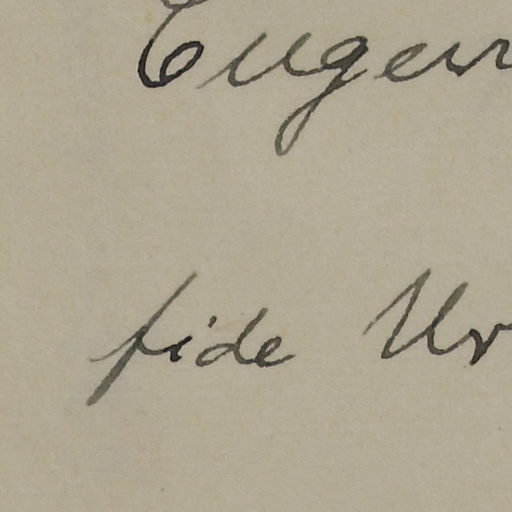 Eugen
fide Ur